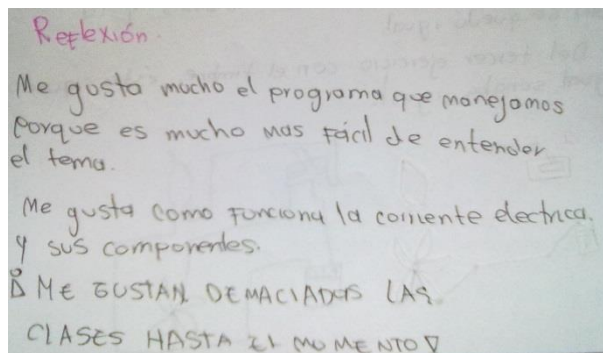 Reflexión.
Me gusta mucho el programa que manejamos
porque es mucho mas fácil de entender
el tema.
Me gusta como funciona la corriente electrica.
y sus componentes.
¡ ME GUSTAN DEMACIADOS LAS
CLASES HASTA EL MOMENTO!